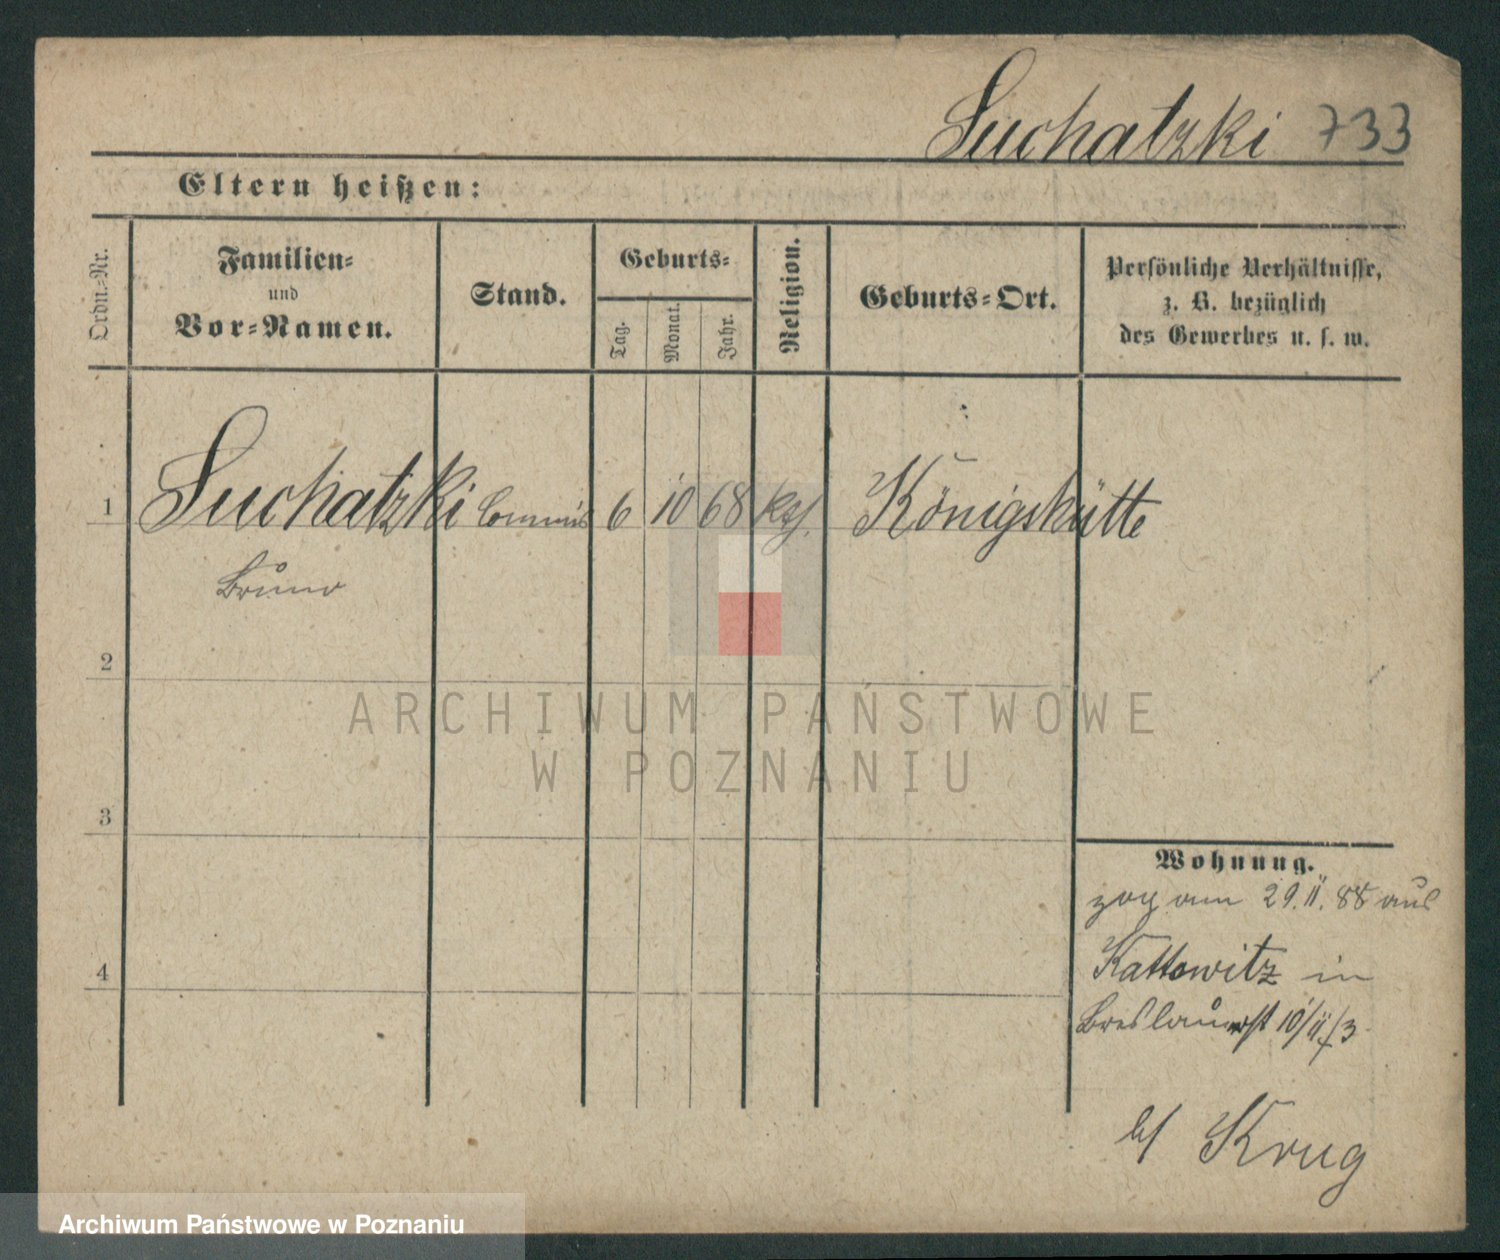 Suchatzki 733
Eltern heißen:
Ordn.-Nr.
Familien-
und
Vor-Namen.
Stand.
Geburts-
Tag.
Monat.
Jahr.
Religion.
Geburts-Ort.
Persönliche Verhältnisse,
z. B. bezüglich
des Gewerbes u. s. w.
1 Suchatzki Commis 6 10 68 Königshütte
Bruno
2
3
4
Wohnung.
zog am 29. II. 88 aus
Kattowitz in
Breslauerst 10/II/3
b/ Krug
ARCHIWUM PAŃSTWOWE
W POZNANIU
Archiwum Państwowe w Poznaniu